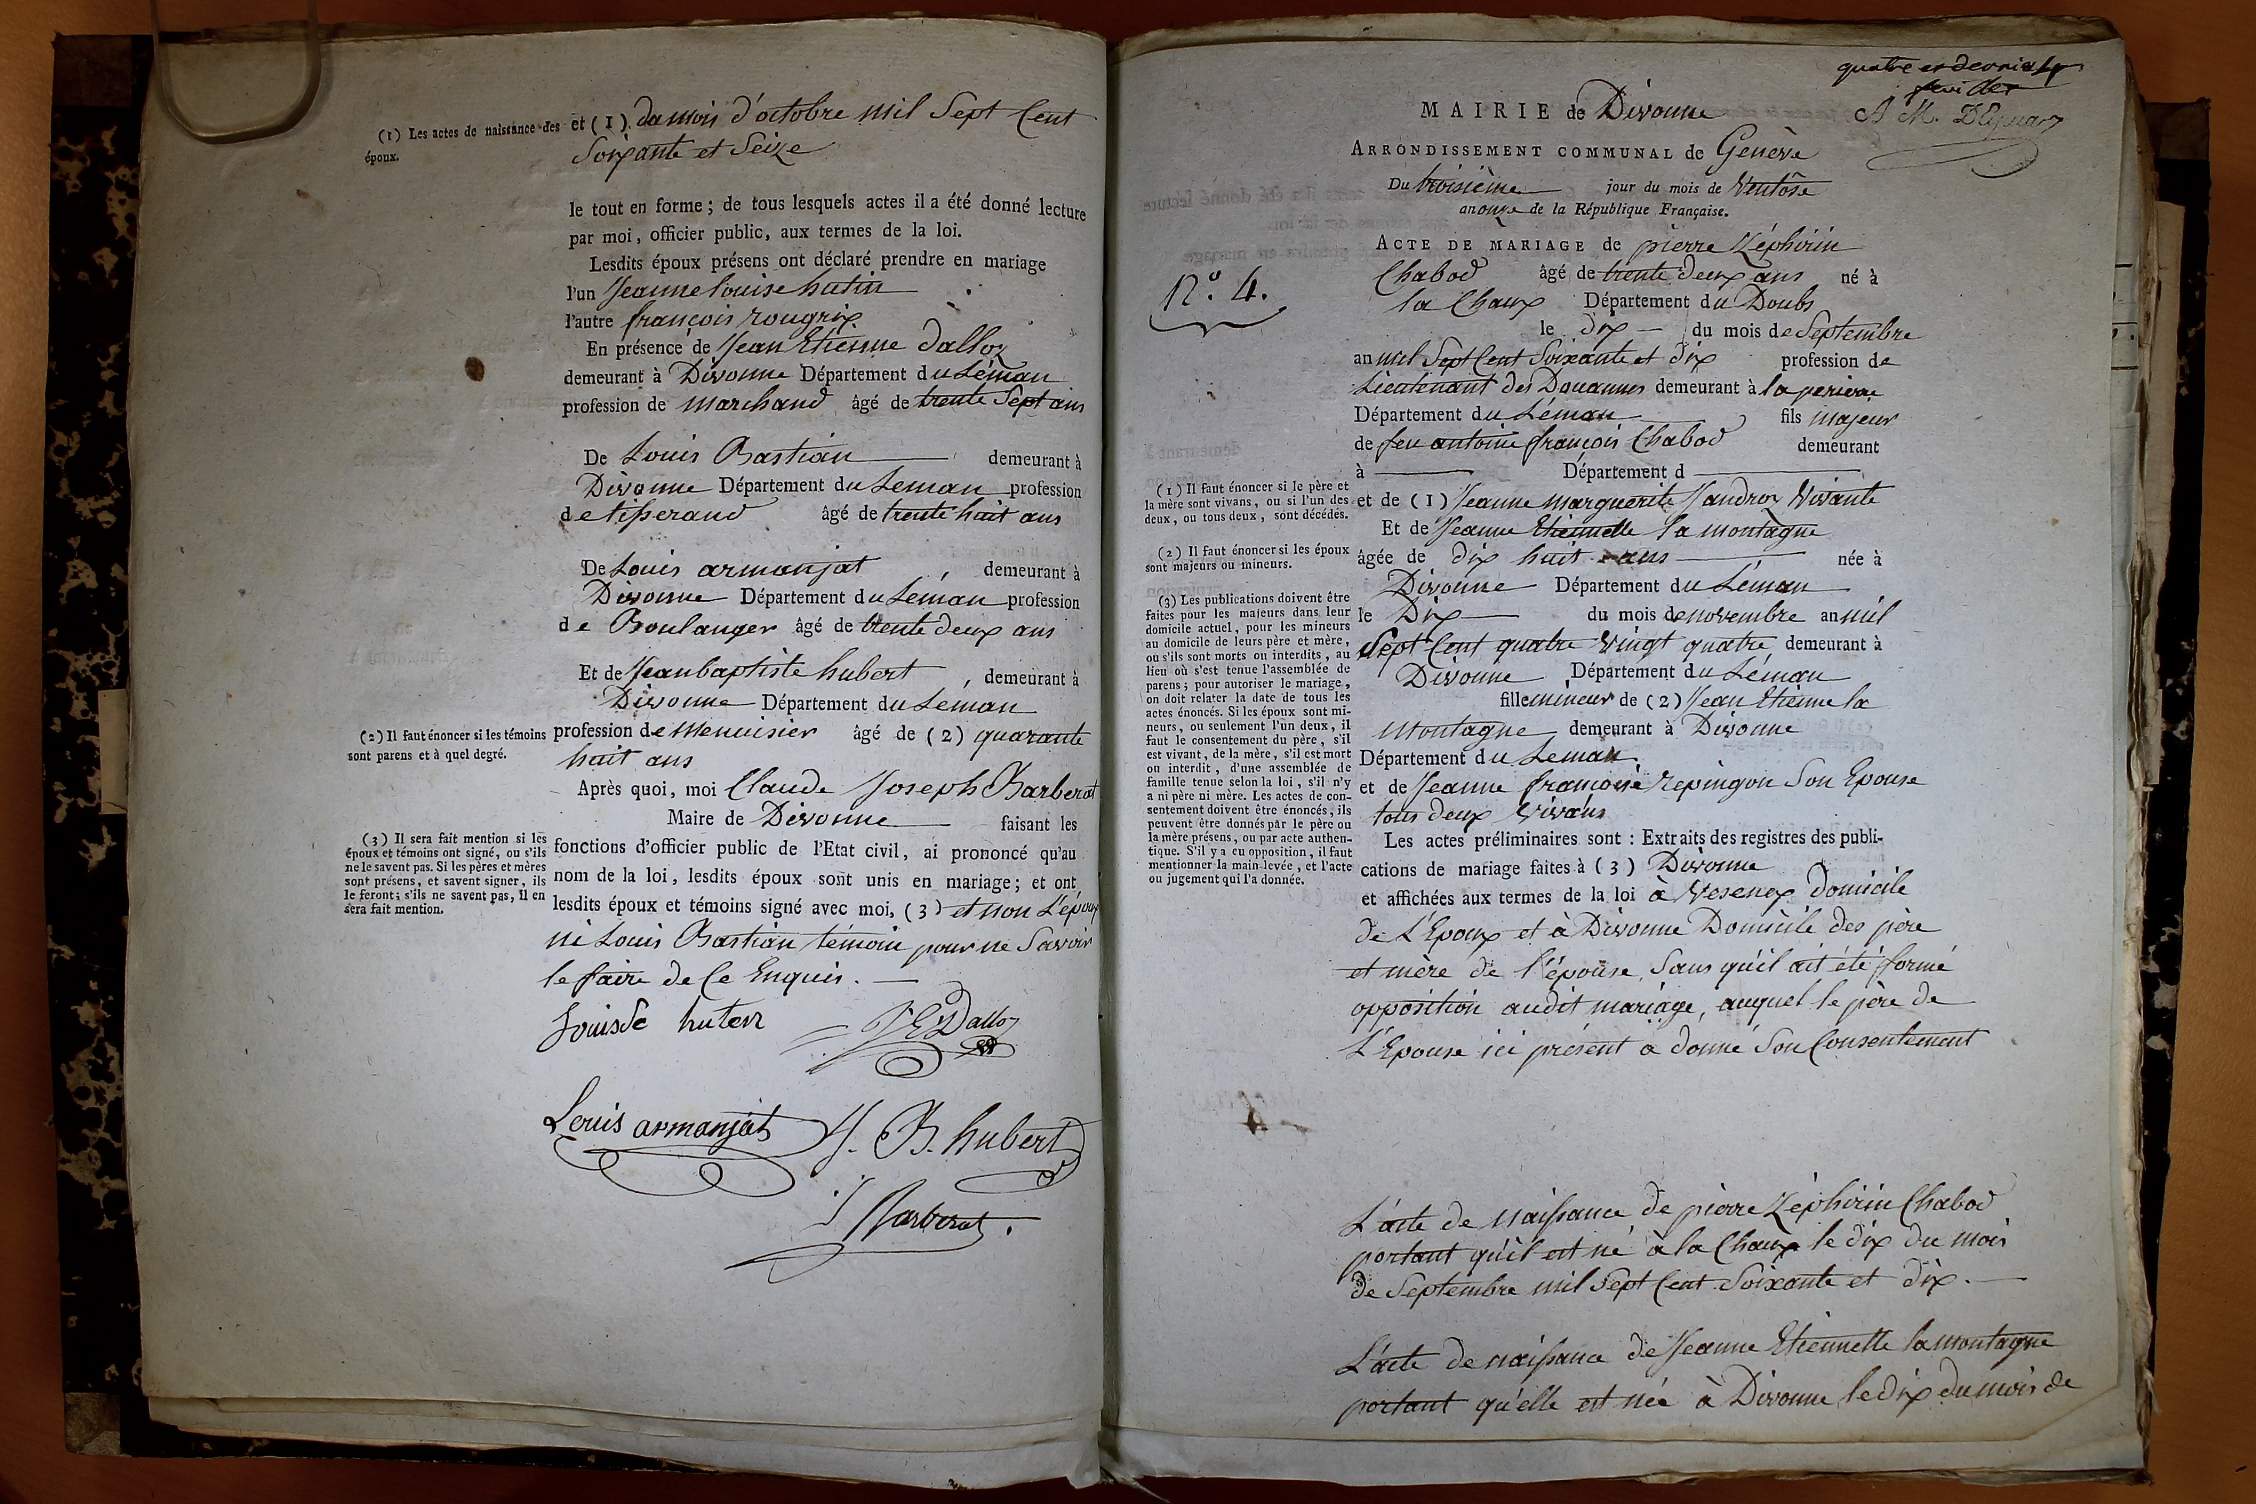 (1) Les actes de naissance des
époux.
et (1) du mois d'octobre mil Sept Cent
Soixante et Seize
le tout en forme ; de tous lesquels actes il a été donné lecture
par moi, officier public, aux termes de la loi.
Lesdits époux présens ont déclaré prendre en mariage
l'un Jeanne louise hutin
l'autre françois rougrix
En présence de Jean Etienne dalloz
demeurant à Divonne Département du Léman
profession de marchand âgé de trente Sept ans
De Louis Bastian demeurant à
Divonne Département du Leman profession
de tisserand âgé de trente huit ans
De Louis armanjat demeurant à
Divonne Département du Léman profession
de Boulanger âgé de trente deux ans
Et de Jean baptiste hubert, demeurant à
Divonne Département du Léman
(2) Il faut énoncer si les témoins
sont parens et à quel degré.
profession de Menuisier âgé de (2) quarante
huit ans
Après quoi, moi Claude Joseph Barberat
Maire de Divonne faisant les
(3) Il sera fait mention si les
époux et témoins ont signé, ou s'ils
ne le savent pas. Si les pères et mères
sont présens, et savent signer, ils
le feront; s'ils ne savent pas, il en
sera fait mention.
fonctions d'officier public de l'Etat civil, ai prononcé qu'au
nom de la loi, lesdits époux sont unis en mariage; et ont
lesdits époux et témoins signé avec moi, (3) et non L'époux
ni Louis Bastian témoin pour ne Savoir
le faire de Ce Enquis.
Louisde huten
J E Dalloz
Louis armanjat
J. B. hubert
Barberat.
quatre et dernier
feuillet
A M.
MAIRIE de Divonne
ARRONDISSEMENT COMMUNAL de Genève
Du troisième jour du mois de Ventôse
an onze de la République Française.
N.º 4.
ACTE DE MARIAGE de pierre Zéphirin
Chabod âgé de trente deux ans né à
la Chaux Département du Doubs
le dix du mois de Septembre
an mil Sept Cent Soixante et dix profession de
Lieutenant des Douannes demeurant à la
Département du Léman fils majeur
de feu antoine françois Chabod demeurant
à Département d
(1) Il faut énoncer si le père et
la mère sont vivans, ou si l'un des
deux, ou tous deux, sont décédés.
et de (1) Jeanne marguerite Vivante
Et de Jeanne Etiennette la montagne
(2) Il faut énoncer si les époux
sont majeurs ou mineurs.
âgée de dix huit ans née à
Divonne Département du Léman
le Dix du mois de novembre an mil
Sept Cent quatre Vingt quatre demeurant à
Divonne Département du Léman
fille mineur de (2) Jean Etienne la
montagne demeurant à Divonne
Département du Leman
et de Jeanne françoise repingon Son Epouse
tous deux Vivans
(3) Les publications doivent être
faites pour les majeurs dans leur
domicile actuel, pour les mineurs
au domicile de leurs père et mère,
ou s'ils sont morts ou interdits, au
lieu où s'est tenue l'assemblée de
parens; pour autoriser le mariage,
on doit relater la date de tous les
actes énoncés. Si les époux sont mi-
neurs, ou seulement l'un deux, il
faut le consentement du père, s'il
est vivant, de la mère, s'il est mort
ou interdit, d'une assemblée de
famille tenue selon la loi, s'il n'y
a ni père ni mère. Les actes de con-
sentement doivent être énoncés, ils
peuvent être donnés par le père ou
la mère présens, ou par acte authen-
tique. S'il y a eu opposition, il faut
mentionner la main levée, et l'acte
ou jugement qui l'a donnée.
Les actes préliminaires sont : Extraits des registres des publi-
cations de mariage faites à (3) Divonne
et affichées aux termes de la loi à Vesenex Domicile
de L'Epoux et à Divonne Domicile des père
et mère de l'épouse, Sans qu'il ait été formé
opposition audit mariage, auquel le père de
L'Epouse ici présent a donné Son Consentement
L'acte de naissance de pierre Zéphirin Chabod
portant qu'il est né à la Chaux le dix du mois
de Septembre mil Sept Cent Soixante et dix.
L'acte de naissance de Jeanne Etiennette la montagne
portant qu'elle est née à Divonne le dix du mois de